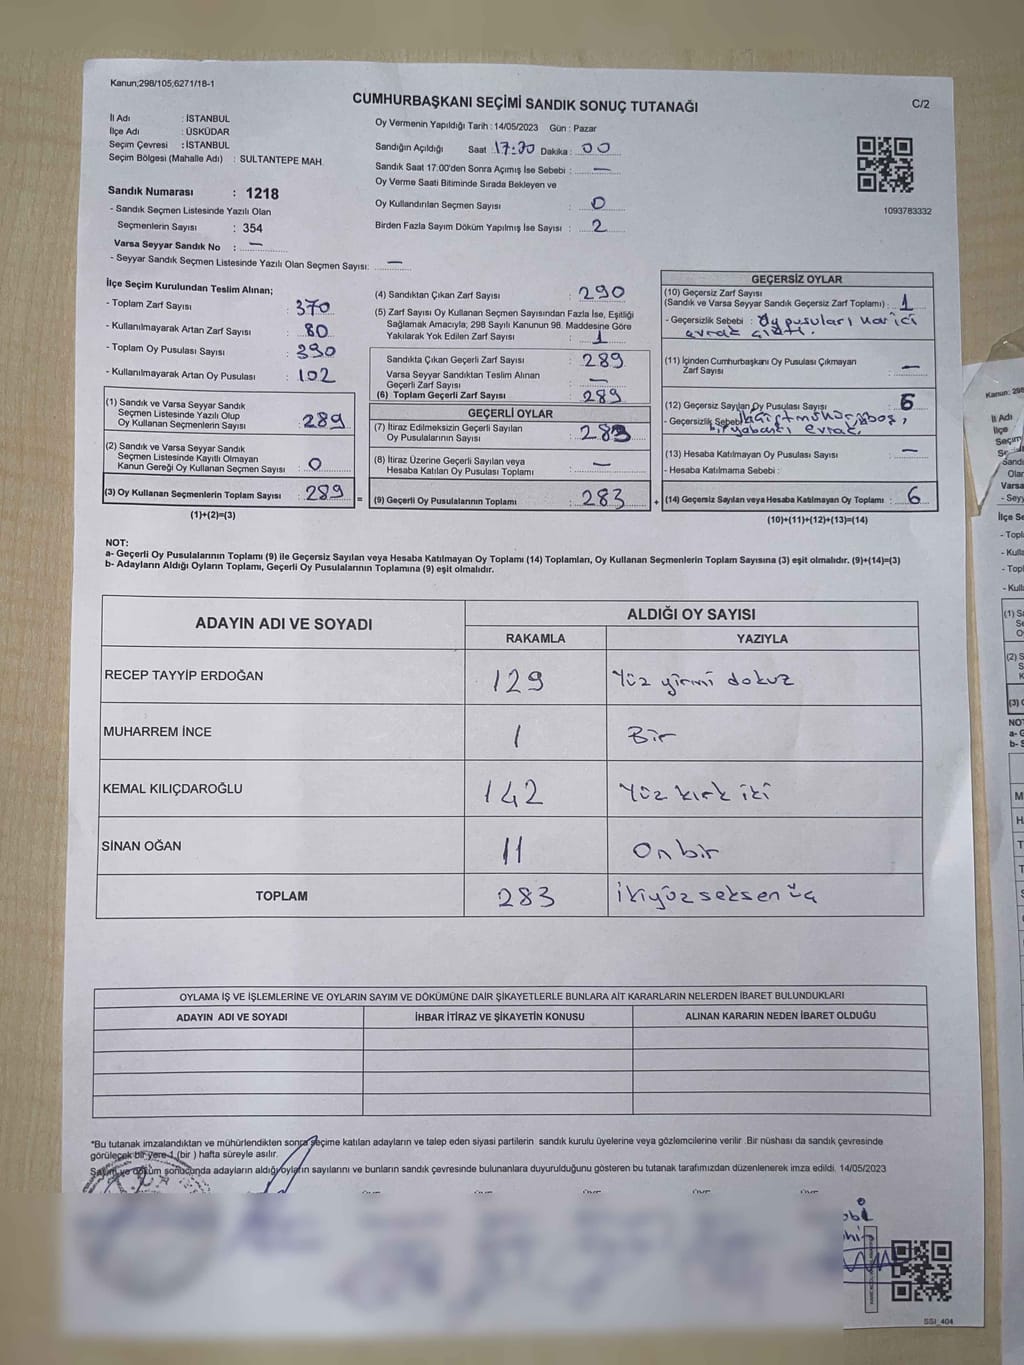 Kanun;298/105;6271/18-1
CUMHURBAŞKANI SEÇİMİ SANDIK SONUÇ TUTANAĞI
C/2
İl Adı : İSTANBUL
İlçe Adı : ÜSKÜDAR
Seçim Çevresi : İSTANBUL
Seçim Bölgesi (Mahalle Adı) : SULTANTEPE MAH.
Sandık Numarası : 1218
- Sandık Seçmen Listesinde Yazılı Olan
Seçmenlerin Sayısı : 354
Varsa Seyyar Sandık No : —
- Seyyar Sandık Seçmen Listesinde Yazılı Olan Seçmen Sayısı: —
Oy Vermenin Yapıldığı Tarih : 14/05/2023 Gün : Pazar
Sandığın Açıldığı Saat : 17:00 Dakika : 00
Sandık Saat 17:00'den Sonra Açımış İse Sebebi : —
Oy Verme Saati Bitiminde Sırada Bekleyen ve
Oy Kullandırılan Seçmen Sayısı : 0
Birden Fazla Sayım Döküm Yapılmış İse Sayısı : 2
1093783332
İlçe Seçim Kurulundan Teslim Alınan;
- Toplam Zarf Sayısı : 370
- Kullanılmayarak Artan Zarf Sayısı : 80
- Toplam Oy Pusulası Sayısı : 390
- Kullanılmayarak Artan Oy Pusulası : 102
(1) Sandık ve Varsa Seyyar Sandık
Seçmen Listesinde Yazılı Olup
Oy Kullanan Seçmenlerin Sayısı : 289
(2) Sandık ve Varsa Seyyar Sandık
Seçmen Listesinde Kayıtlı Olmayan
Kanun Gereği Oy Kullanan Seçmen Sayısı : 0
(3) Oy Kullanan Seçmenlerin Toplam Sayısı : 289 =
(1)+(2)=(3)
(4) Sandıktan Çıkan Zarf Sayısı : 290
(5) Zarf Sayısı Oy Kullanan Seçmen Sayısından Fazla İse, Eşitliği
Sağlamak Amacıyla; 298 Sayılı Kanunun 98. Maddesine Göre
Yakılarak Yok Edilen Zarf Sayısı : 1
Sandıkta Çıkan Geçerli Zarf Sayısı : 289
Varsa Seyyar Sandıktan Teslim Alınan
Geçerli Zarf Sayısı : —
(6) Toplam Geçerli Zarf Sayısı : 289
GEÇERLİ OYLAR
(7) İtiraz Edilmeksizin Geçerli Sayılan
Oy Pusulalarının Sayısı : 283
(8) İtiraz Üzerine Geçerli Sayılan veya
Hesaba Katılan Oy Pusulası Toplamı : —
(9) Geçerli Oy Pusulalarının Toplamı : 283 +
GEÇERSİZ OYLAR
(10) Geçersiz Zarf Sayısı
(Sandık ve Varsa Seyyar Sandık Geçersiz Zarf Toplamı) : 1
- Geçersizlik Sebebi : Oy pusuları harici
evrak çıktı.
(11) İçinden Cumhurbaşkanı Oy Pusulası Çıkmayan
Zarf Sayısı : —
(12) Geçersiz Sayılan Oy Pusulası Sayısı : 6
- Geçersizlik Sebebi boş,
yabancı evrak.
(13) Hesaba Katılmayan Oy Pusulası Sayısı : —
- Hesaba Katılmama Sebebi :
(14) Geçersiz Sayılan veya Hesaba Katılmayan Oy Toplamı : 6
(10)+(11)+(12)+(13)=(14)
NOT:
a- Geçerli Oy Pusulalarının Toplamı (9) ile Geçersiz Sayılan veya Hesaba Katılmayan Oy Toplamı (14) Toplamları, Oy Kullanan Seçmenlerin Toplam Sayısına (3) eşit olmalıdır. (9)+(14)=(3)
b- Adayların Aldığı Oyların Toplamı, Geçerli Oy Pusulalarının Toplamına (9) eşit olmalıdır.
ADAYIN ADI VE SOYADI
ALDIĞI OY SAYISI
RAKAMLA YAZIYLA
RECEP TAYYİP ERDOĞAN 129 Yüz yirmi dokuz
MUHARREM İNCE 1 Bir
KEMAL KILIÇDAROĞLU 142 Yüz kırk iki
SİNAN OĞAN 11 On bir
TOPLAM 283 İkiyüz seksen üç
OYLAMA İŞ VE İŞLEMLERİNE VE OYLARIN SAYIM VE DÖKÜMÜNE DAİR ŞİKAYETLERLE BUNLARA AİT KARARLARIN NELERDEN İBARET BULUNDUKLARI
ADAYIN ADI VE SOYADI İHBAR İTİRAZ VE ŞİKAYETİN KONUSU ALINAN KARARIN NEDEN İBARET OLDUĞU
*Bu tutanak imzalandıktan ve mühürlendikten sonra seçime katılan adayların ve talep eden siyasi partilerin sandık kurulu üyelerine veya gözlemcilerine verilir .Bir nüshası da sandık çevresinde
görülecek bir yere 1 (bir ) hafta süreyle asılır.
Sayım ve döküm sonucunda adayların aldığı oyların sayılarını ve bunların sandık çevresinde bulunanlara duyurulduğunu gösteren bu tutanak tarafımızdan düzenlenerek imza edildi. 14/05/2023
SSİ_404